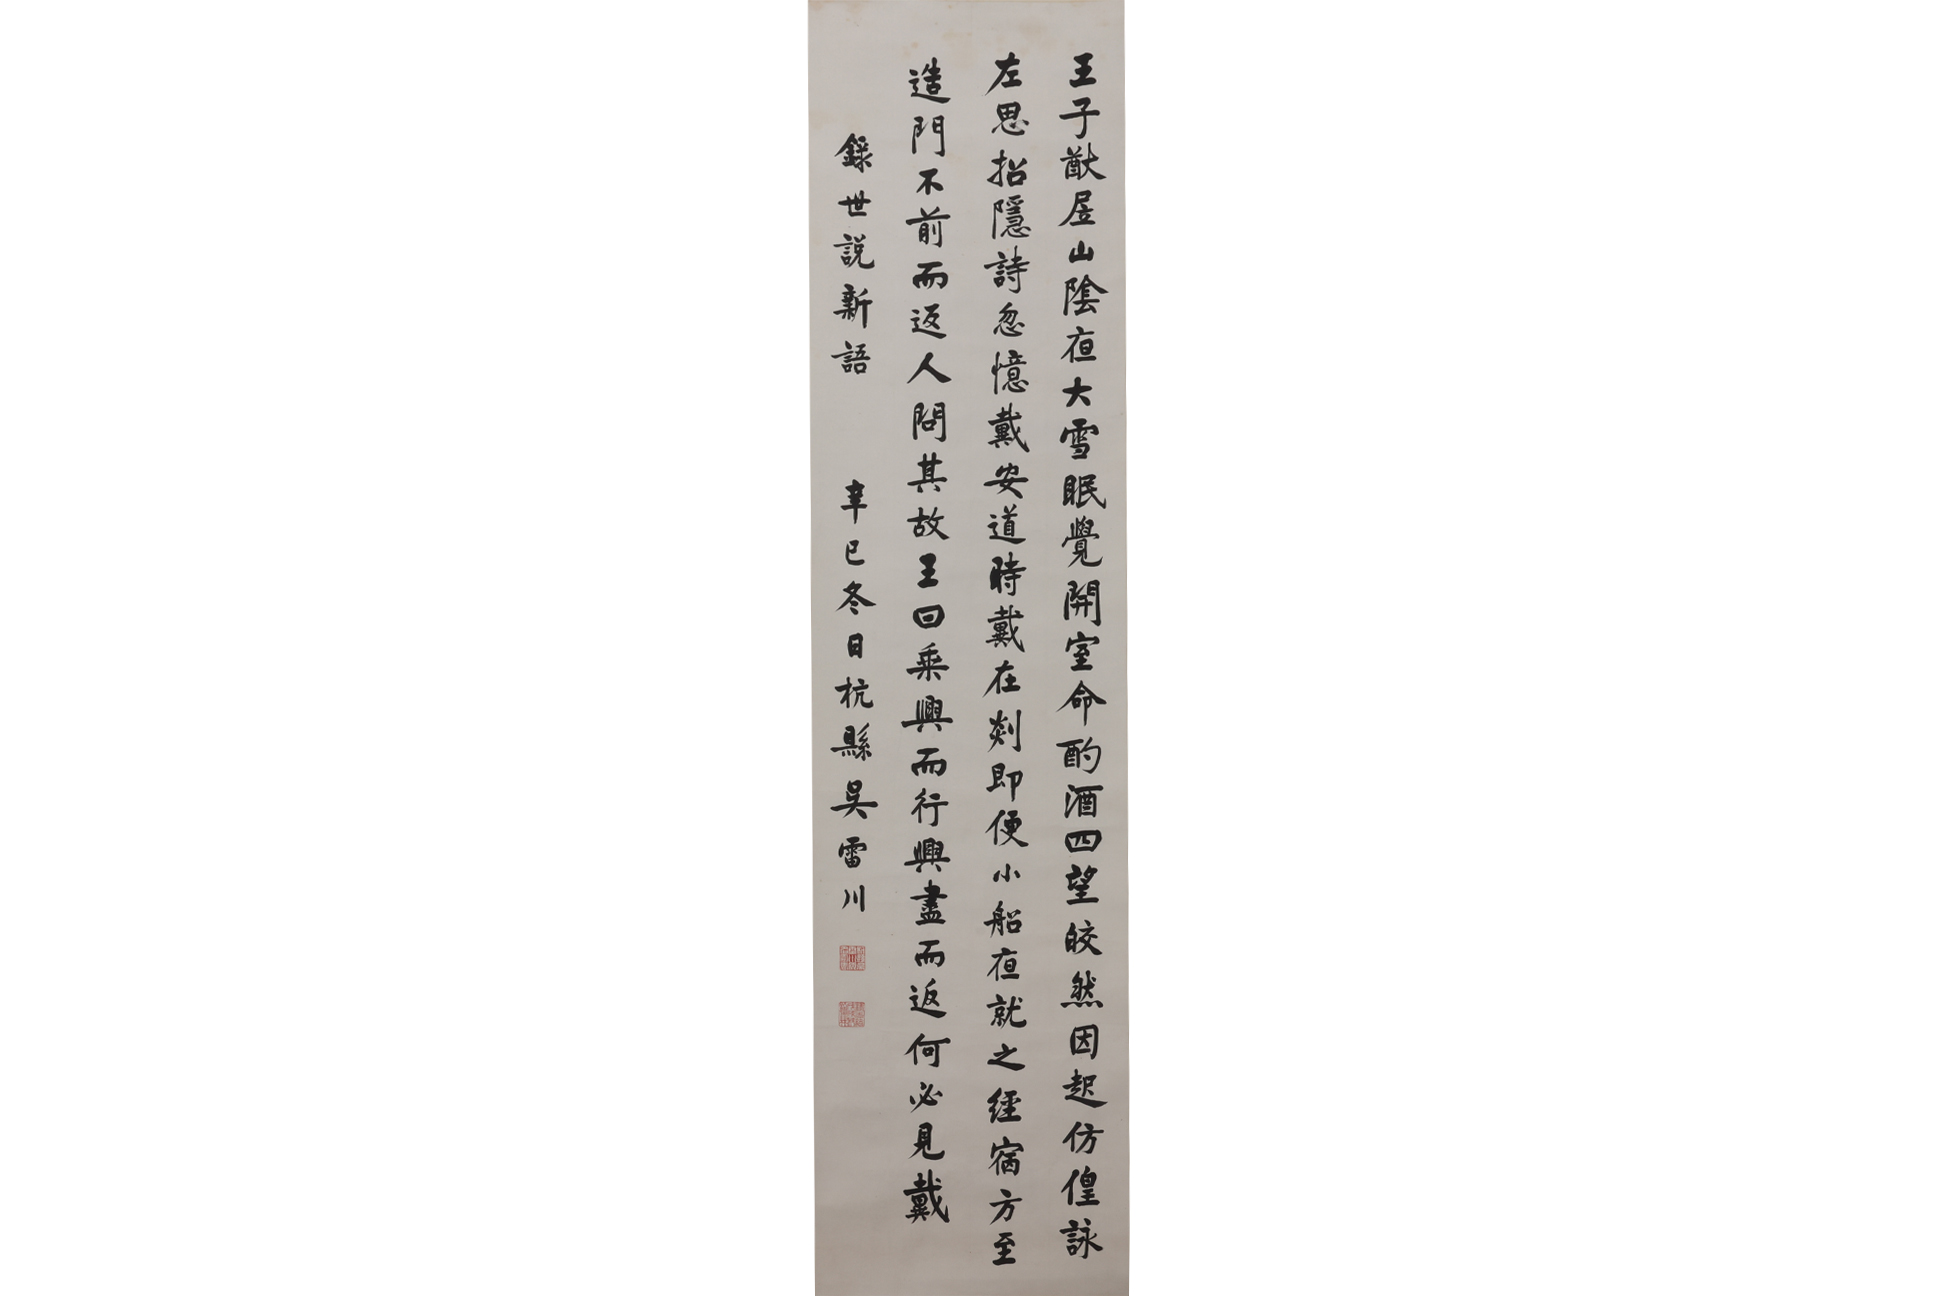 王子猷居山陰夜大雪眠覺開室命酌酒四望皎然因起仿偟詠
左思招隱詩忽憶戴安道時戴在剡即便小船夜就之經宿方至
造門不前而返人問其故王曰乘興而行興盡而返何必見戴
錄世說新語 辛巳冬日杭縣吳雷川